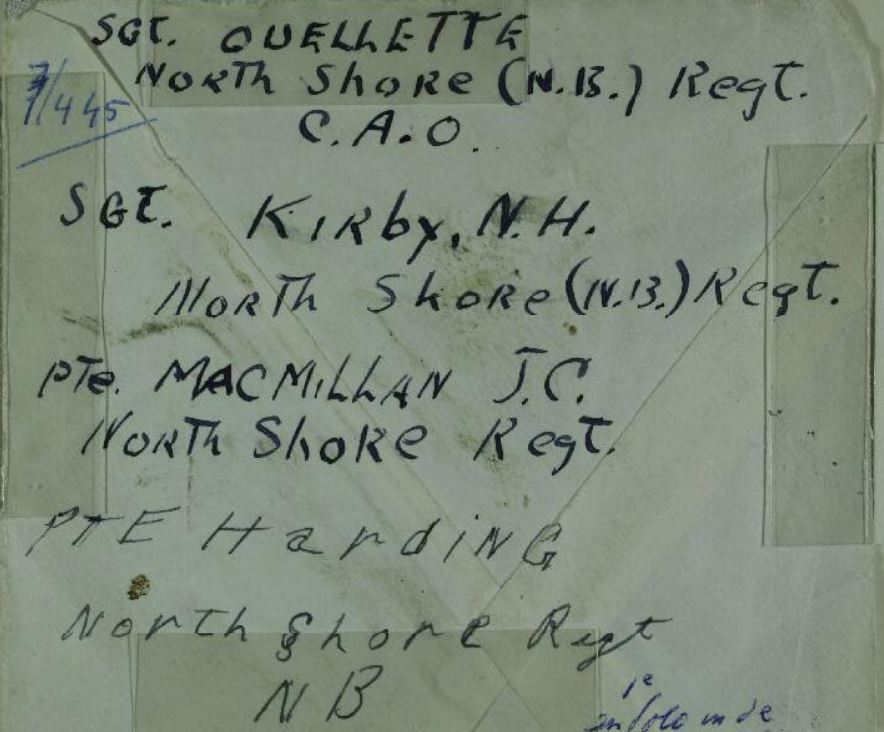 SGT. OUELLETTE
NORTh ShORe (N.B.) Regt.
7/445
C.A.O.
SGT. KIRby, N.H.
NORTh ShORe (N.B.) Regt.
PTe. MACMILLAN J.C.
NORTh ShORe Regt.
PTE HardiNG
North Shore Regt
NB
1e